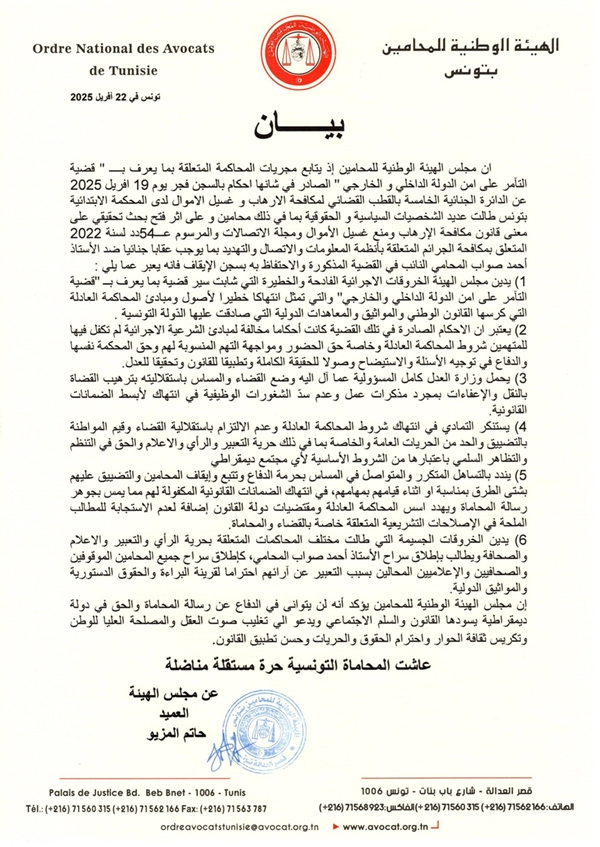 Ordre National des Avocats
de Tunisie
الهيئة الوطنية للمحامين
بتونس
تونس في 22 أفريل 2025
بيـــان
ان مجلس الهيئة الوطنية للمحامين إذ يتابع مجريات المحاكمة المتعلقة بما يعرف بــــ " قضية
التآمر على امن الدولة الداخلي و الخارجي " الصادر في شانها احكام بالسجن فجر يوم 19 افريل 2025
عن الدائرة الجنائية الخامسة بالقطب القضائي لمكافحة الارهاب و غسيل الاموال لدى المحكمة الابتدائية
بتونس طالت عديد الشخصيات السياسية و الحقوقية بما في ذلك محامين و على اثر فتح بحث تحقيقي على
معنى قانون مكافحة الإرهاب ومنع غسيل الأموال ومجلة الاتصالات والمرسوم عـــ54دد لسنة 2022
المتعلق بمكافحة الجرائم المتعلقة بأنظمة المعلومات والاتصال والتهديد بما يوجب عقابا جنائيا ضد الأستاذ
أحمد صواب المحامي النائب في القضية المذكورة والاحتفاظ به بسجن الإيقاف فانه يعبر عما يلي :
1) يدين مجلس الهيئة الخروقات الاجرائية الفادحة والخطيرة التي شابت سير قضية بما يعرف بـــ "قضية
التآمر على امن الدولة الداخلي والخارجي" والتي تمثل انتهاكا خطيرا لأصول ومبادئ المحاكمة العادلة
التي كرسها القانون الوطني والمواثيق والمعاهدات الدولية التي صادقت عليها الدولة التونسية .
2) يعتبر ان الاحكام الصادرة في تلك القضية كانت أحكاما مخالفة لمبادئ الشرعية الاجرائية لم تكفل فيها
للمتهمين شروط المحاكمة العادلة وخاصة حق الحضور ومواجهة التهم المنسوبة لهم وحق المحكمة نفسها
والدفاع في توجيه الأسئلة والاستيضاح وصولا للحقيقة الكاملة وتطبيقا للقانون وتحقيقا للعدل.
3) يحمل وزارة العدل كامل المسؤولية عما آل اليه وضع القضاء والمساس باستقلاليته بترهيب القضاة
بالنقل والإعفاءات بمجرد مذكرات عمل وعدم سدّ الشغورات الوظيفية في انتهاك لأبسط الضمانات
القانونية.
4) يستنكر التمادي في انتهاك شروط المحاكمة العادلة وعدم الالتزام باستقلالية القضاء وقيم المواطنة
بالتضييق والحد من الحريات العامة والخاصة بما في ذلك حرية التعبير والرأي والاعلام والحق في التنظم
والتظاهر السلمي باعتبارها من الشروط الأساسية لأي مجتمع ديمقراطي
5) يندد بالتساهل المتكرر والمتواصل في المساس بحرمة الدفاع وتتبع وإيقاف المحامين والتضييق عليهم
بشتى الطرق بمناسبة او اثناء قيامهم بمهامهم، في انتهاك الضمانات القانونية المكفولة لهم مما يمس بجوهر
رسالة المحاماة ويهدد اسس المحاكمة العادلة ومقتضيات دولة القانون إضافة لعدم الاستجابة للمطالب
الملحة في الإصلاحات التشريعية المتعلقة خاصة بالقضاء والمحاماة.
6) يدين الخروقات الجسيمة التي طالت مختلف المحاكمات المتعلقة بحرية الرأي والتعبير والاعلام
والصحافة ويطالب بإطلاق سراح الأستاذ أحمد صواب المحامي، كإطلاق سراح جميع المحامين الموقوفين
والصحافيين والإعلاميين المحالين بسبب التعبير عن آرائهم احتراما لقرينة البراءة والحقوق الدستورية
والمواثيق الدولية.
إن مجلس الهيئة الوطنية للمحامين يؤكد أنه لن يتوانى في الدفاع عن رسالة المحاماة والحق في دولة
ديمقراطية يسودها القانون والسلم الاجتماعي ويدعو الي تغليب صوت العقل والمصلحة العليا للوطن
وتكريس ثقافة الحوار واحترام الحقوق والحريات وحسن تطبيق القانون.
عاشت المحاماة التونسية حرة مستقلة مناضلة
عن مجلس الهيئة
العميد
حاتم المزيو
Palais de Justice Bd. Beb Bnet - 1006 - Tunis
Tél.: (+216) 71 560 315 (+216) 71 562 166 Fax: (+216) 71 563 787
قصر العدالة - شارع باب بنات - تونس 1006
الهاتف:71562166 (216+) 71560315 (216+)الفاكس:71568923 (216+)
ordreavocatstunisie@avocat.org.tn
www.avocat.org.tn